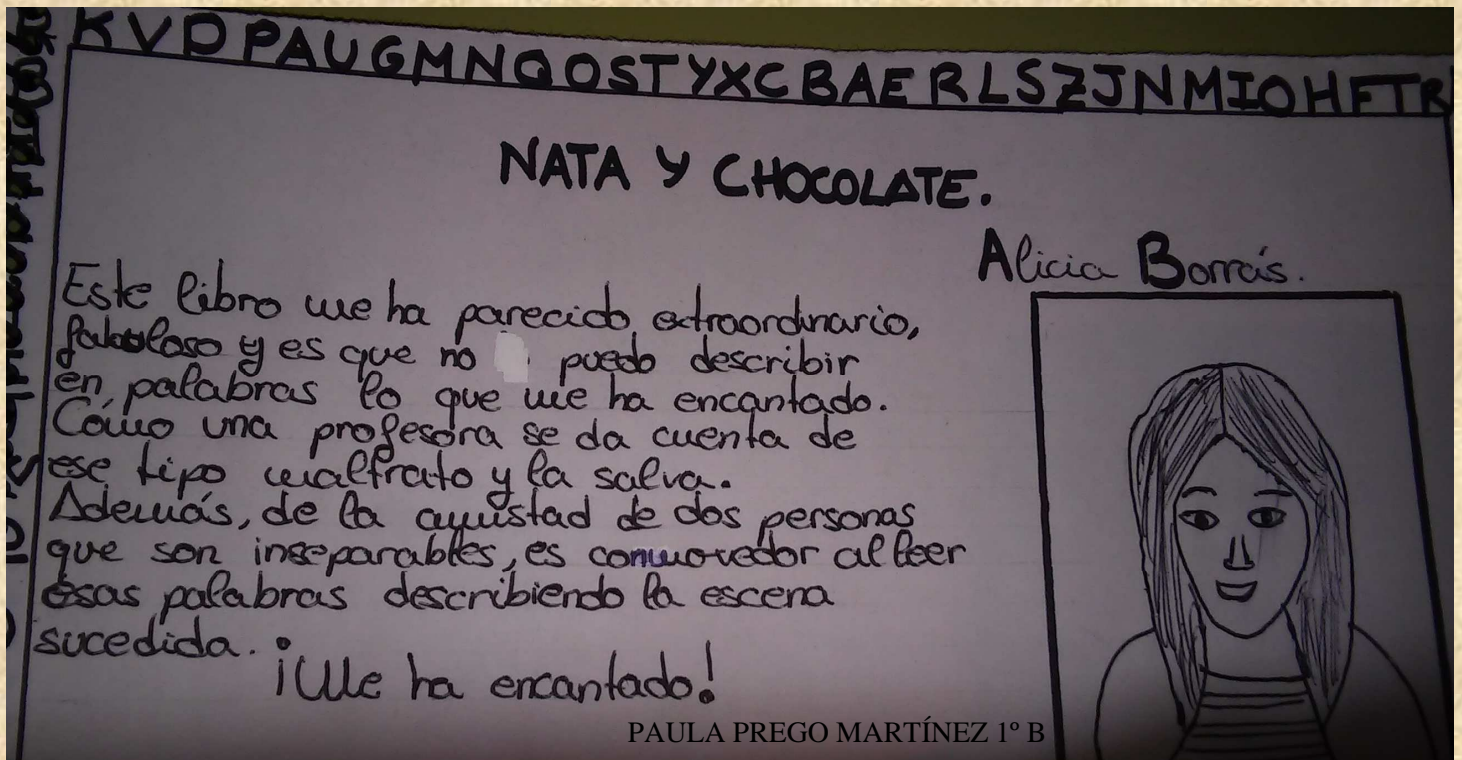 KVDPAUGMNQOSTYXCBAERLSZJNMIOHFTR
NATA Y CHOCOLATE.
Alicia Borrás.
Este libro me ha parecido extraordinario,
fabuloso y es que no puedo describir
en palabras lo que me ha encantado.
Cómo una profesora se da cuenta de
ese tipo maltrato y la salva.
Además, de la amistad de dos personas
que son inseparables, es conmovedor al leer
esas palabras describiendo la escena
sucedida.
¡Me ha encantado!
PAULA PREGO MARTÍNEZ 1º B